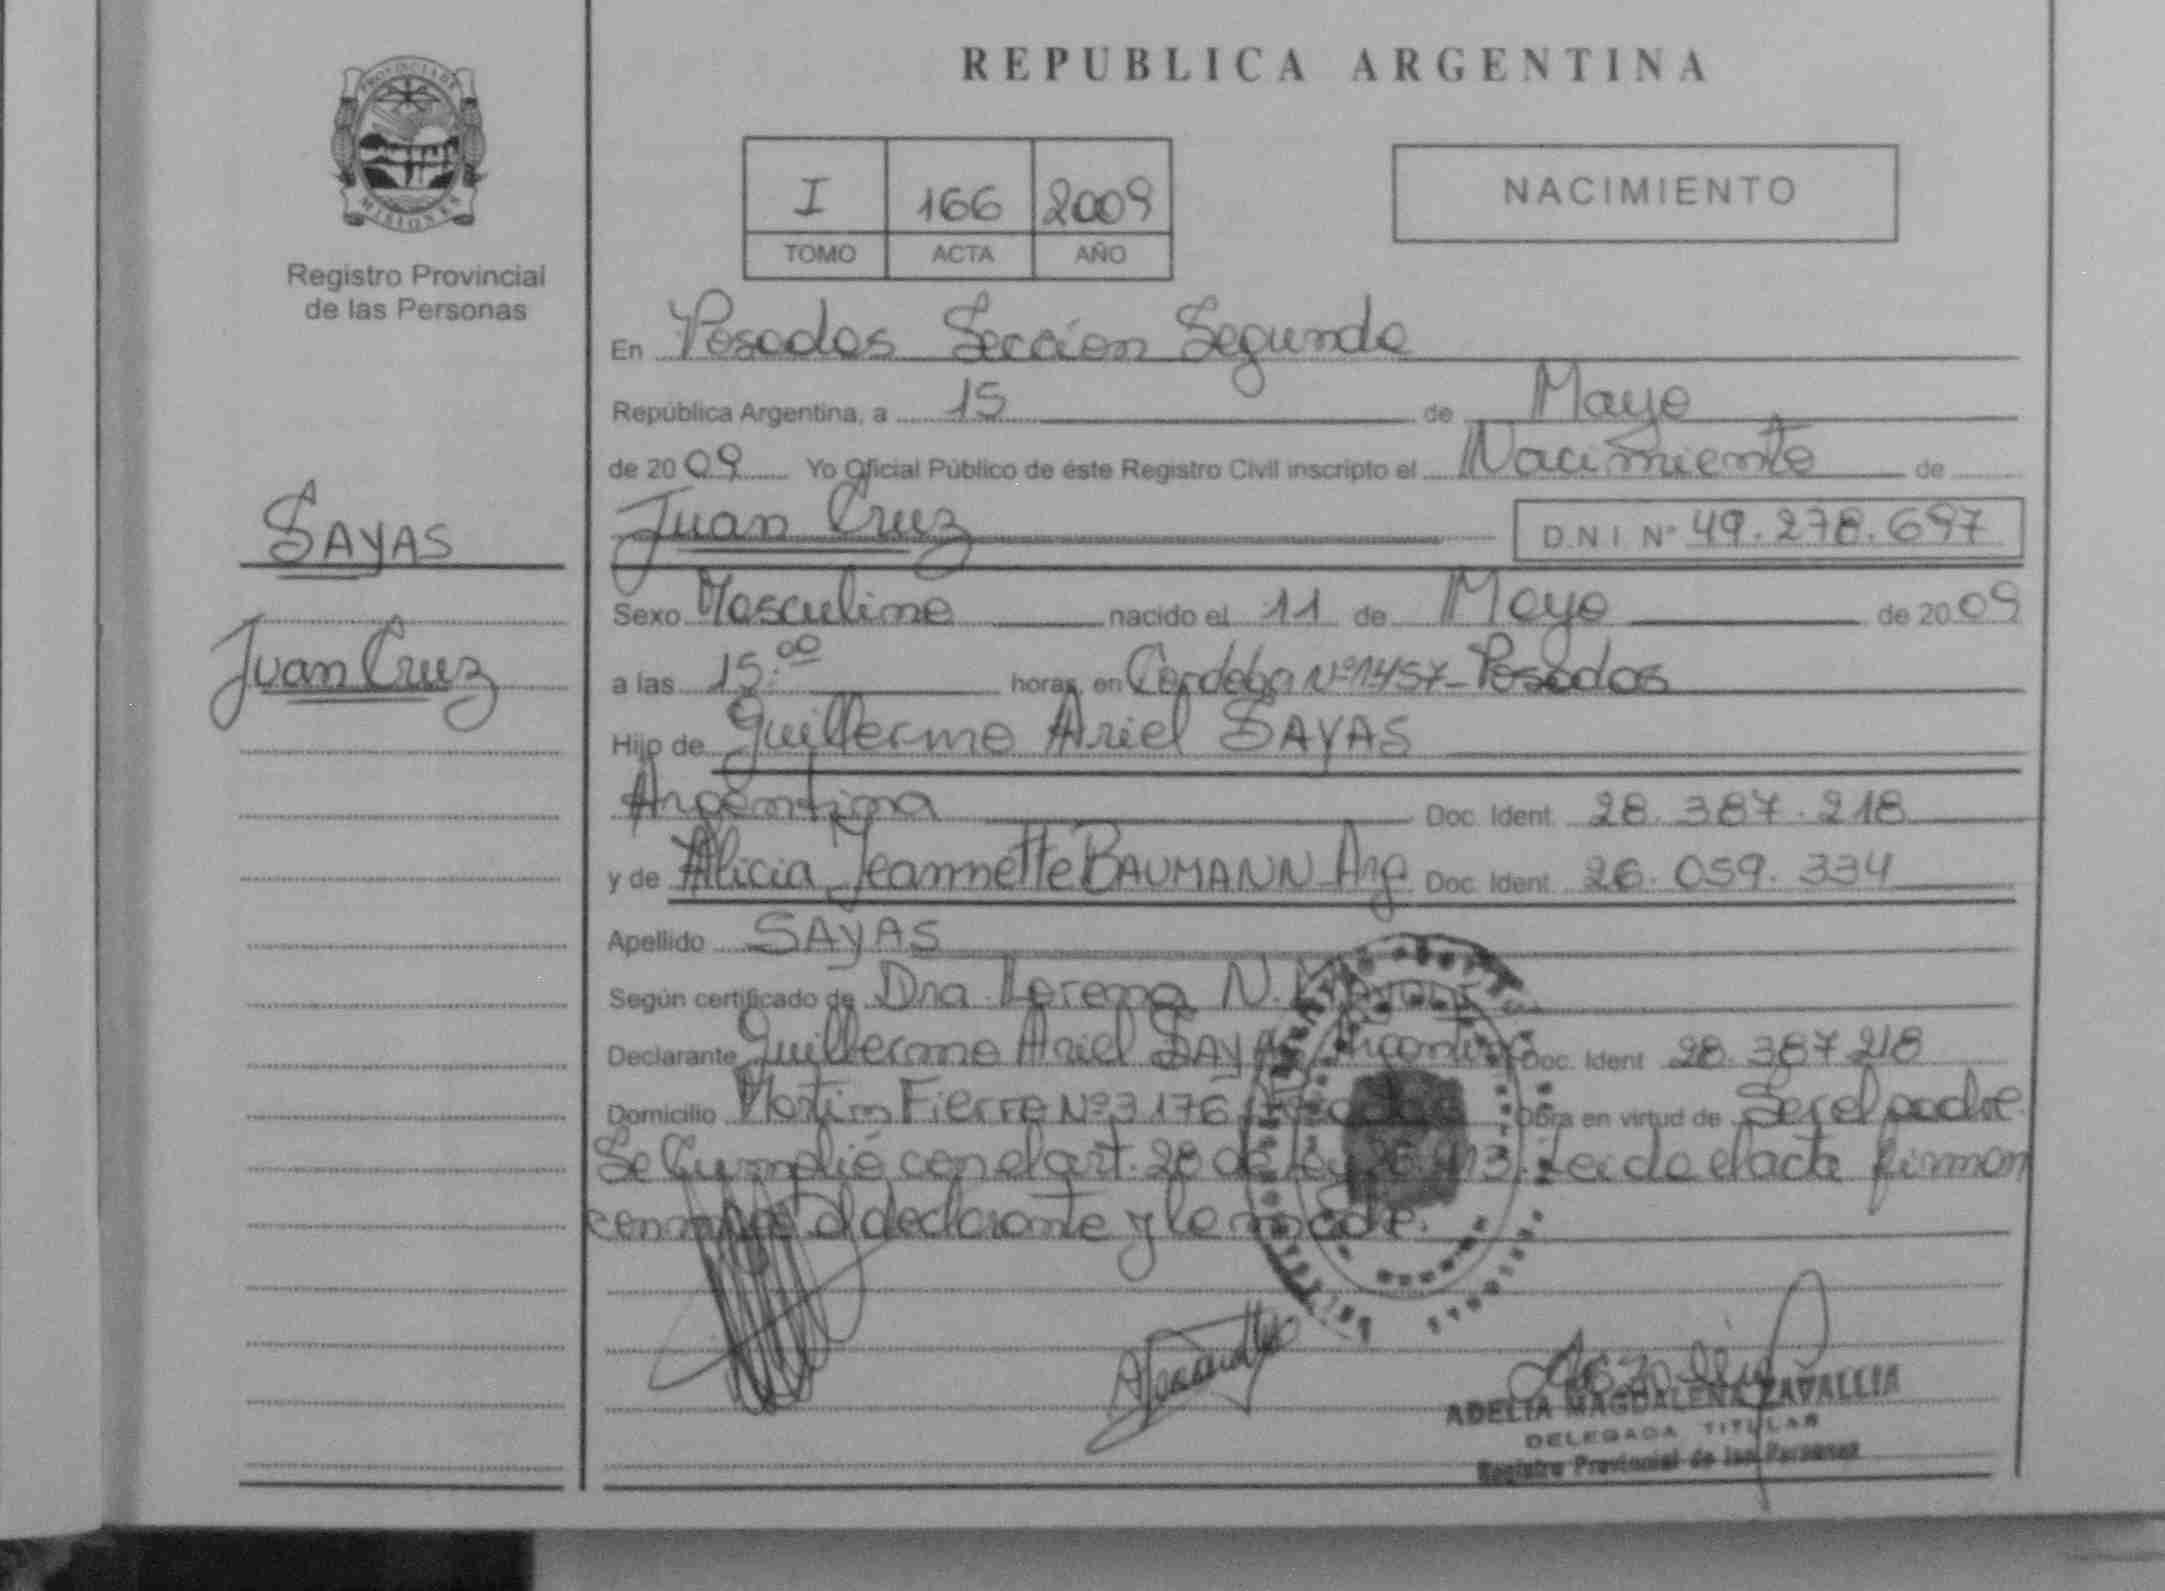 PROVINCIA DE
MISIONES
Registro Provincial
de las Personas
SAYAS
Juan Cruz
REPUBLICA ARGENTINA
I 166 2009
TOMO ACTA AÑO
NACIMIENTO
En Posadas Sección Segunda
República Argentina, a 15 de Mayo
de 2009 Yo Oficial Público de éste Registro Civil inscripto el Nacimiento de
Juan Cruz D.N.I. Nº 49.278.697
Sexo Masculino nacido el 11 de Mayo de 2009
a las 15:00 horas, en Cordoba Nº1457-Posadas
Hijo de Guillermo Ariel SAYAS
Argentina Doc. Ident. 28.387.218
y de Alicia Jeannette BAUMANN Arg Doc. Ident. 26.059.334
Apellido SAYAS
Según certificado de Dra. Lorena N.
Declarante Guillermo Ariel SAYAS Argentina Doc. Ident 28.387.218
Domicilio Martin Fierro Nº3176 Posadas Obra en virtud de Ser el padre.
Se Cumplió con el art. 28 de Ley 26.413. Leida el acta firman
conmigo el declarante y la madre.
ADELIA MAGDALENA ZAVALLIA
DELEGADA TITULAR
Registro Provincial de las Personas